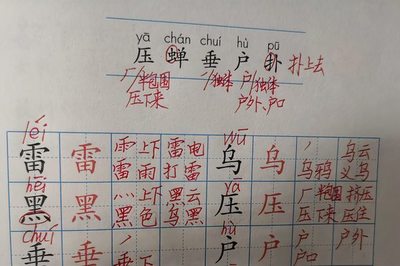 yā chán chuí hù pū
压 蝉 垂 户 扑 扑上去
厂/半包围 丿/独体 户/独体
压下来 户外、户口
léi wū
雷 雷 雨 上下 雷电 乌 乌 丿 乌鸦 乌云
雨 打雷 乌 义乌
hēi yā
黑 黑 上下 黑云 压 压 厂 半包围 挤压
黑 黑色 乌黑 压 压下来 压住
chuí hù
垂 垂 丿 上下 户 户 户外